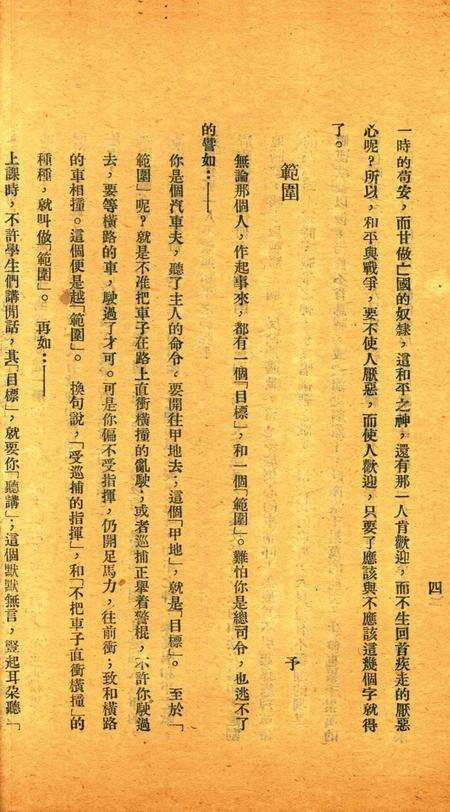 四
一時的苟安，而甘做亡國的奴隸，這和平之神，還有那一人肯歡迎，而不生回首疾走的厭惡
心呢？所以，和平與戰爭，要不使人厭惡，而使人歡迎，只要了應該與不應該這幾個字就得
了。
範圍 予
無論那個人，作起事來，都有一個「目標」，和一個「範圍」。難怕你是總司令，也逃不了
的譬如：——
你是個汽車夫，聽了主人的命令。要開往甲地去；這個「甲地」，就是「目標」。 至於「
範圍」呢？就是不准把車子在路上直衝橫撞的亂駛；或者巡捕正舉着警棍，不許你駛過
去，要等橫路的車，駛過了才可。可是你偏不受指揮，仍開足馬力，往前衝；致和橫路
的車相撞。這個便是越「範圍」。 換句說，「受巡捕的指揮」，和「不把車子直衝橫撞」的
種種，就叫做「範圍」。 再如：——
上課時，不許學生們講閒話，其「目標」，就要你「聽講」；這個默默無言，豎起耳朵聽「